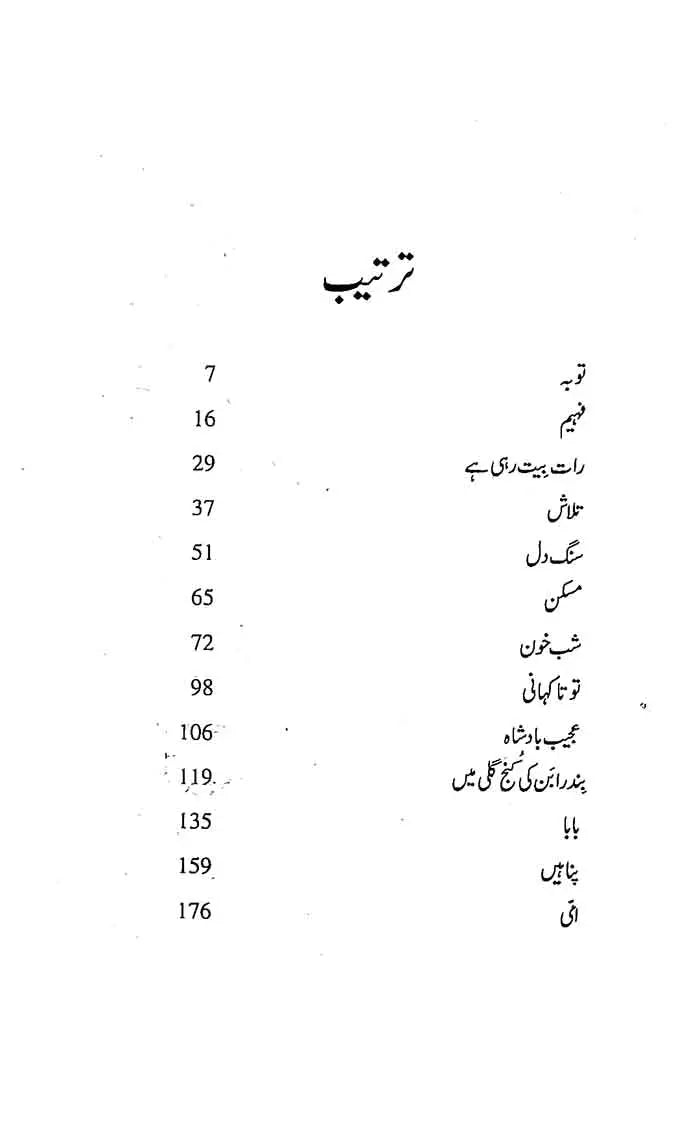 ترتیب
توبہ 7
فہیم 16
رات بِیت رہی ہے 29
تلاش 37
سنگ دل 51
مسکن 65
شب خون 72
توتا کہانی 98
عجیب بادشاہ 106
بِندرابَن کی کُنج گلی میں 119
بابا 135
پناہیں 159
امّی 176